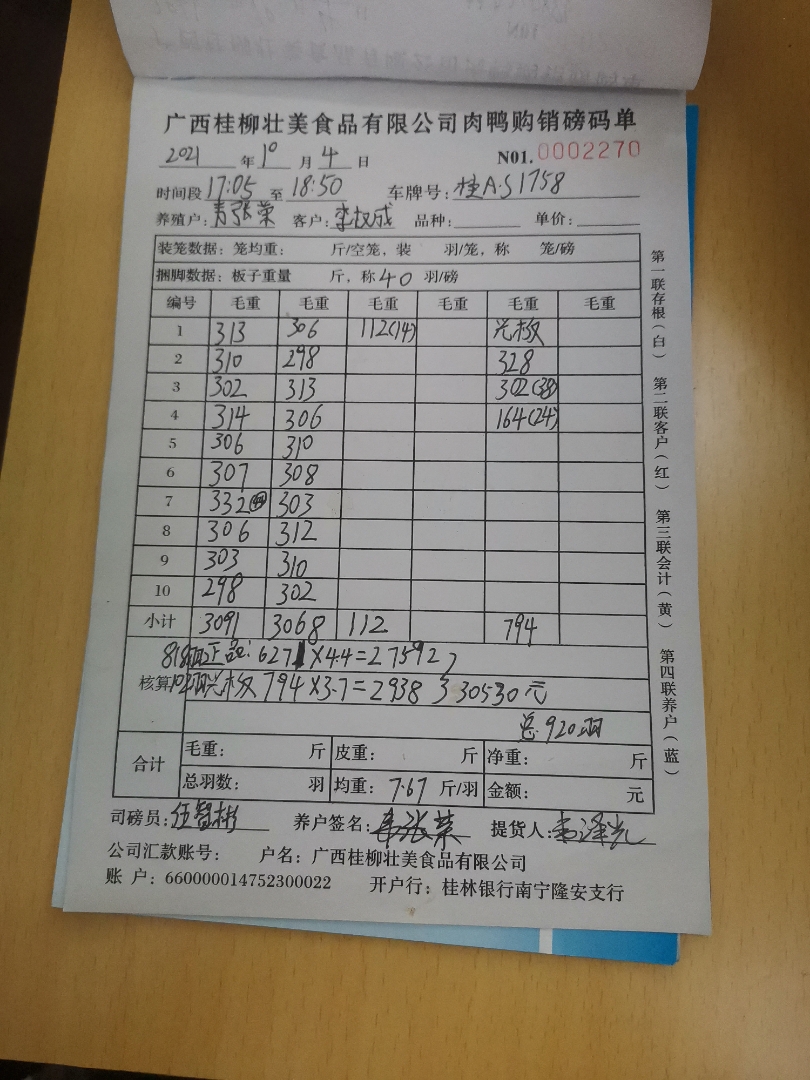 广西桂柳壮美食品有限公司肉鸭购销磅码单
2021 年 10 月 4 日 N01. 0002270
时间段 17:05 至 18:50 车牌号: 桂A·S1758
养殖户: 张荣 客户: 李权成 品种: 单价:
装笼数据: 笼均重: 斤/空笼, 装 羽/笼, 称 笼/磅
捆脚数据: 板子重量 斤, 称 40 羽/磅
编号 毛重 毛重 毛重 毛重 毛重 毛重
1 313 306 112(14) 光板
2 310 298 328
3 302 313 302(38)
4 314 306 164(24)
5 306 310
6 307 308
7 332 303
8 306 312
9 303 310
10 298 302
小计 3091 3068 112 794
818羽正品: 6271×4.4=27592
核算 102羽光板 794×3.7=2938 30530元
总920羽
合计 毛重: 斤 皮重: 斤 净重: 斤
总羽数: 羽 均重: 7.67 斤/羽 金额: 元
司磅员: 伍智彬 养户签名: 韦张荣 提货人: 韦泽光
公司汇款账号: 户名: 广西桂柳壮美食品有限公司
账 户: 660000014752300022 开户行: 桂林银行南宁隆安支行
第一联存根(白) 第二联客户(红) 第三联会计(黄) 第四联养户(蓝)